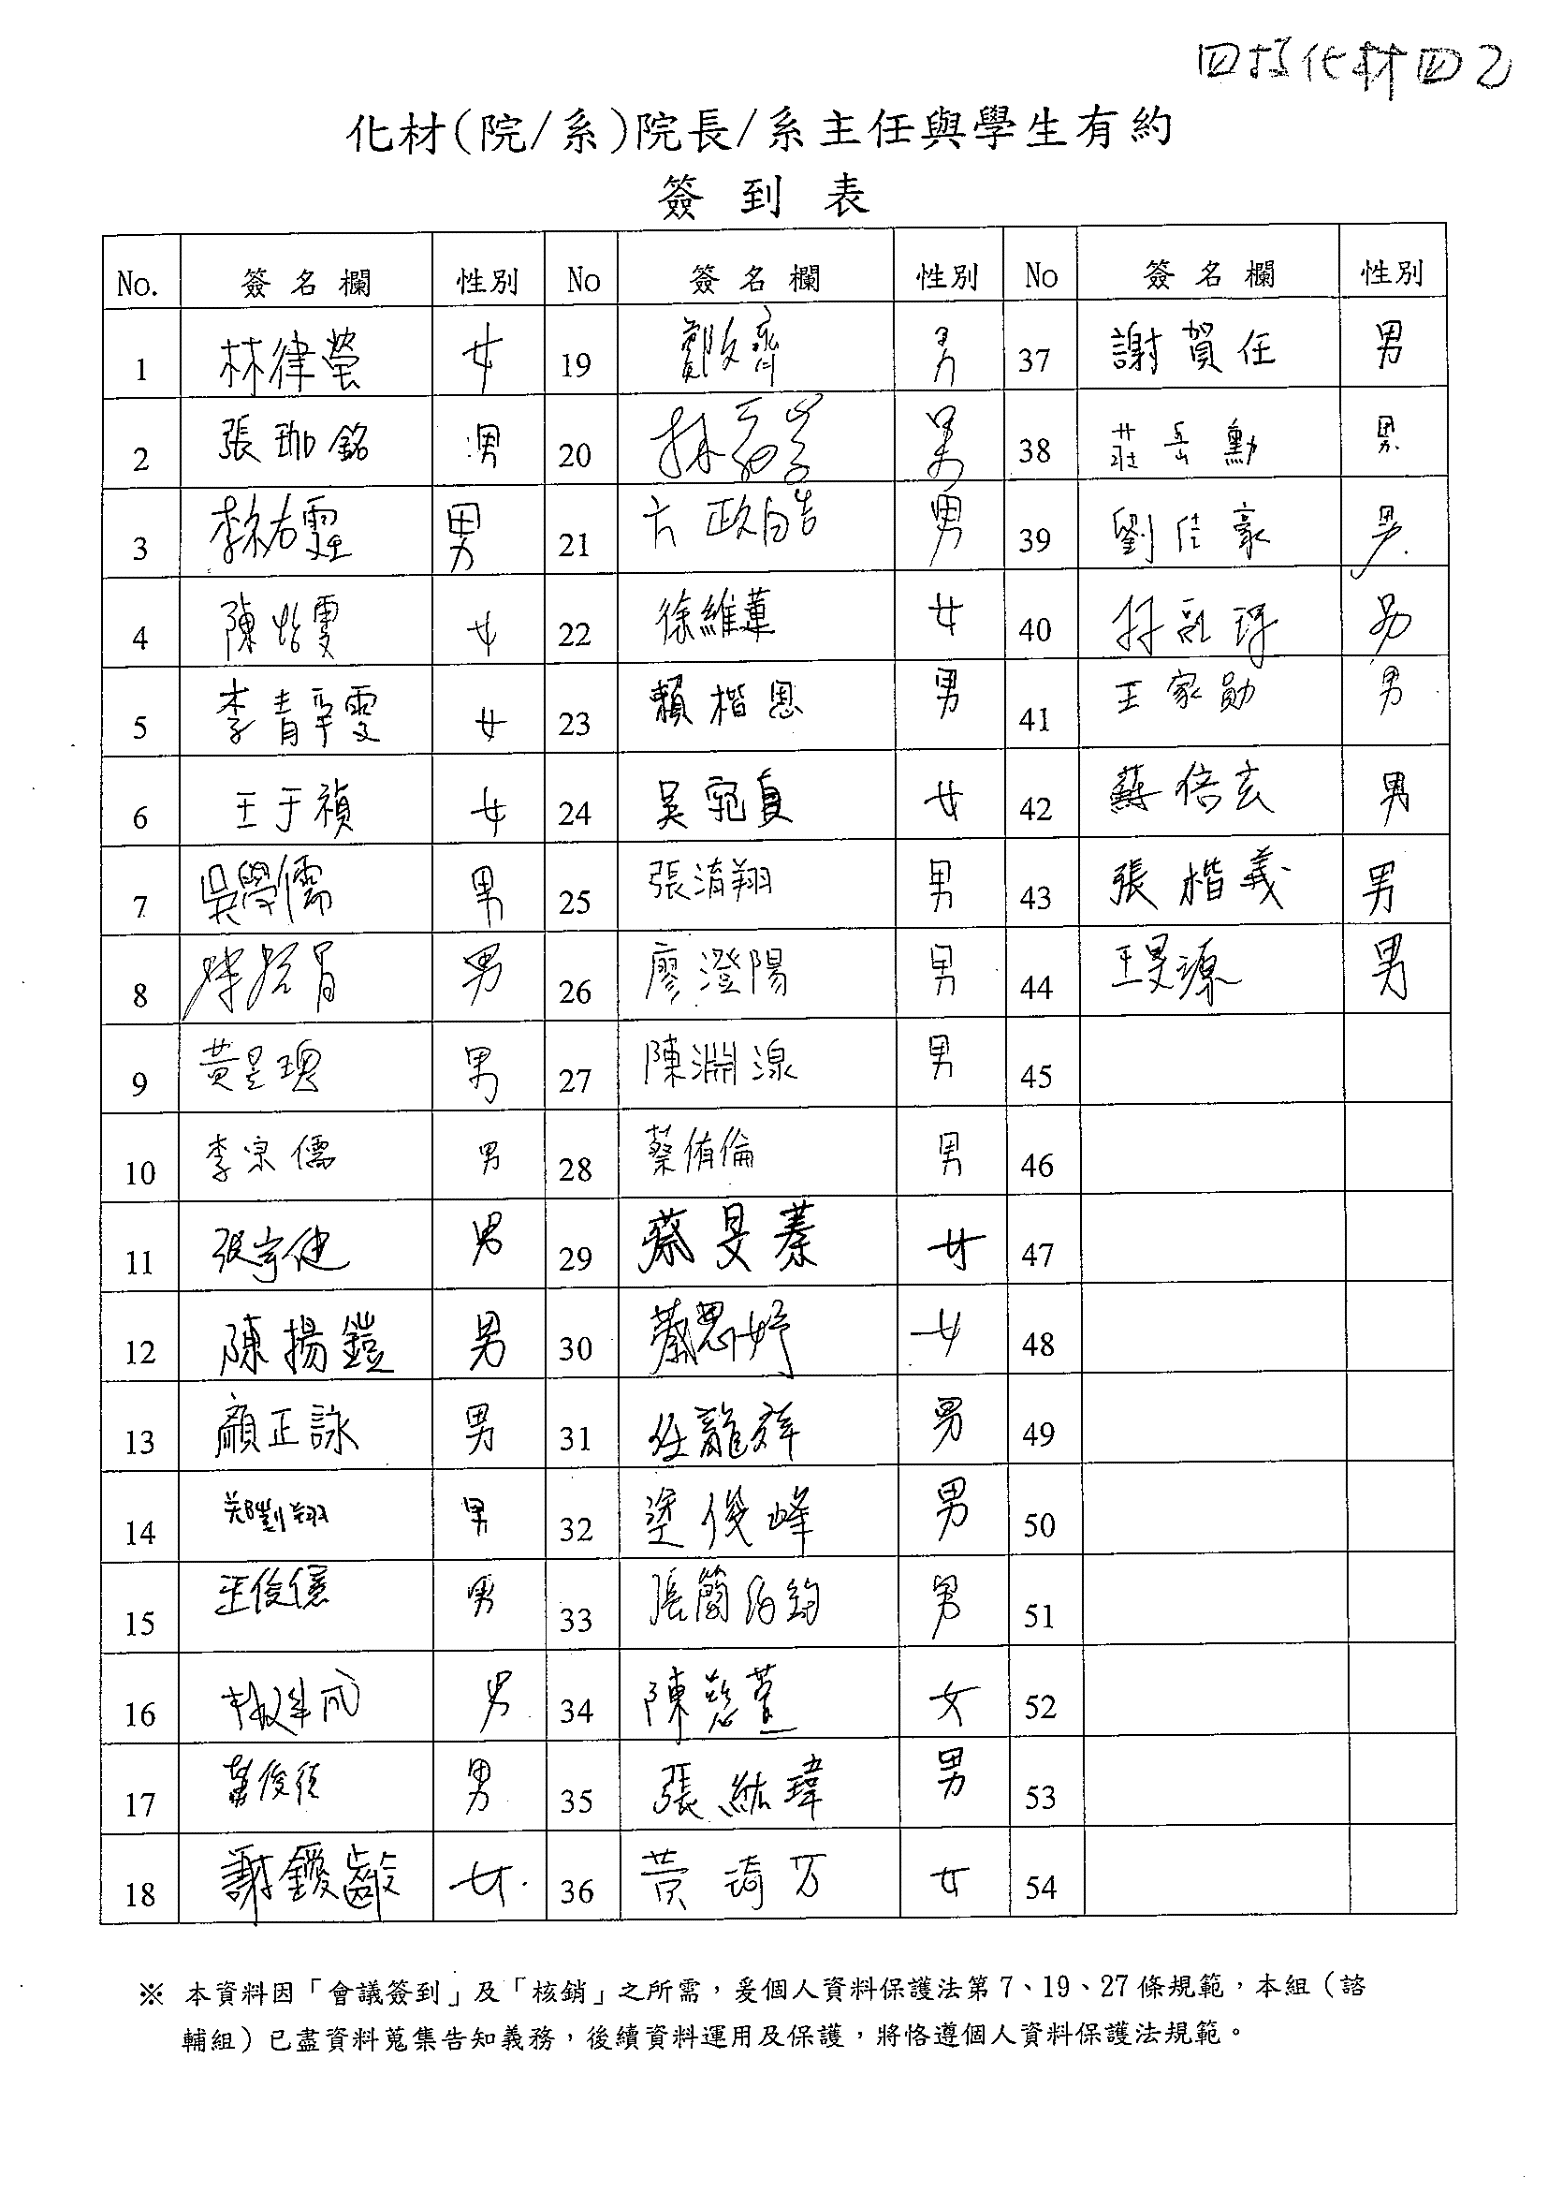 四技化材四乙
化材(院/系)院長/系主任與學生有約
簽到表
No. 簽名欄 性別 No 簽名欄 性別 No 簽名欄 性別
1 林律螢 女 19 鄭文齊 男 37 謝賀任 男
2 張珈銘 男 20 林 男 38 莊岳勳 男
3 李祐霆 男 21 方政皓 男 39 劉佳豪 男
4 陳怡雯 女 22 徐維蓮 女 40 男
5 李青霏雯 女 23 賴楷恩 男 41 王家勛 男
6 王于禎 女 24 吳宛貞 女 42 蘇倍玄 男
7 吳學儒 男 25 張淯翔 男 43 張楷義 男
8 男 26 廖澄陽 男 44 王旻源 男
9 黃昱瑰 男 27 陳淵湶 男 45
10 李宗儒 男 28 蔡侑倫 男 46
11 張宇健 男 29 蔡旻蓁 女 47
12 陳揚鎧 男 30 蔡思妤 女 48
13 顏正詠 男 31 任龍 男 49
14 鄭劉翔 男 32 塗俊峰 男 50
15 王俊億 男 33 張簡伯鈞 男 51
16 男 34 陳慈萱 女 52
17 葉俊 男 35 張紘瑋 男 53
18 謝鎫齡 女 36 黃琦方 女 54
※ 本資料因「會議簽到」及「核銷」之所需，爰個人資料保護法第 7、19、27 條規範，本組（諮
輔組）已盡資料蒐集告知義務，後續資料運用及保護，將恪遵個人資料保護法規範。